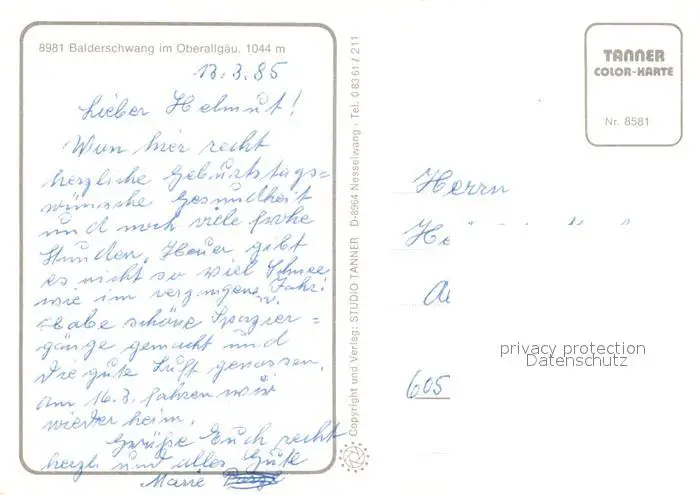 8981 Balderschwang im Oberallgäu. 1044 m
13.3.85
Lieber Helmut!
Wün hier recht
herzliche Geburtstags=
wünsche Gesundheit
und noch viele frohe
Stunden. Heuer gibt
es nicht so viel Schnee
wie im vergangenen Jahr.
Habe schöne Spazier=
gänge gemacht und
die gute Luft genossen.
Am 16.3. fahren wir
wieder heim.
Grüße Euch recht
herzl und alles Gute
Marie
Copyright und Verlag: STUDIO TANNER D-8964 Nesselwang · Tel. 0 83 61 / 211
TANNER
COLOR-KARTE
Nr. 8581
Herrn
He
605
privacy protection
Datenschutz